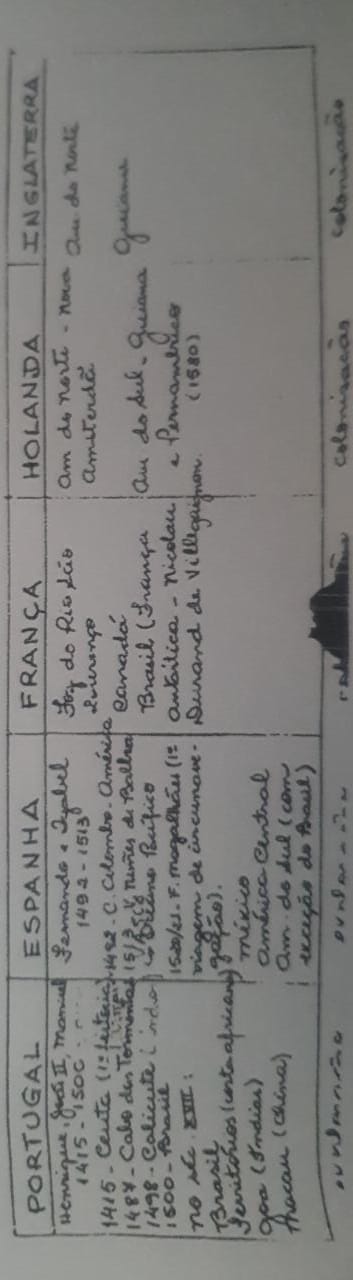 PORTUGAL
Henrique, João II, Manuel
1415 - 1500
1415 - Ceuta (1ª feitoria)
1487 - Cabo das Tormentas
1498 - Calicute (
1500 - Brasil
no séc. XVII:
Brasil
Territórios (costa africana)
Goa (Índias)
Macau (China)
ESPANHA
Fernando e Isabel
1492 - 1513
1492 - C. Colombo - América
Nuñes de Balboa
Oceano Pacífico
F. Magalhães (1ª
viagem de circunave-
gação).
México
América Central
Am. do Sul (com
exceção do Brasil)
FRANÇA
Foz do Rio São
Lourenço
Canadá
Brasil (França
Antártica - Nicolau
Durand de Villegaignon.
HOLANDA
Am do norte - nova
Amsterdã
Am do sul - Guiana
e Pernambuco
(1580)
INGLATERRA
Am do norte
Guiana
colonização
colonização